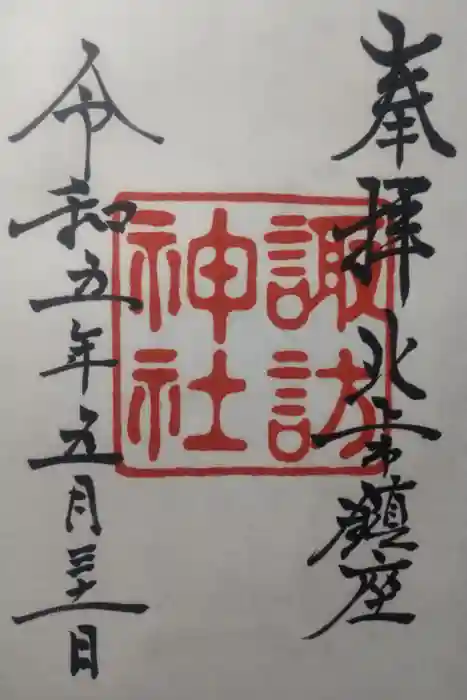 奉拝 鎮座
諏訪
神社
令和五年五月三十一日